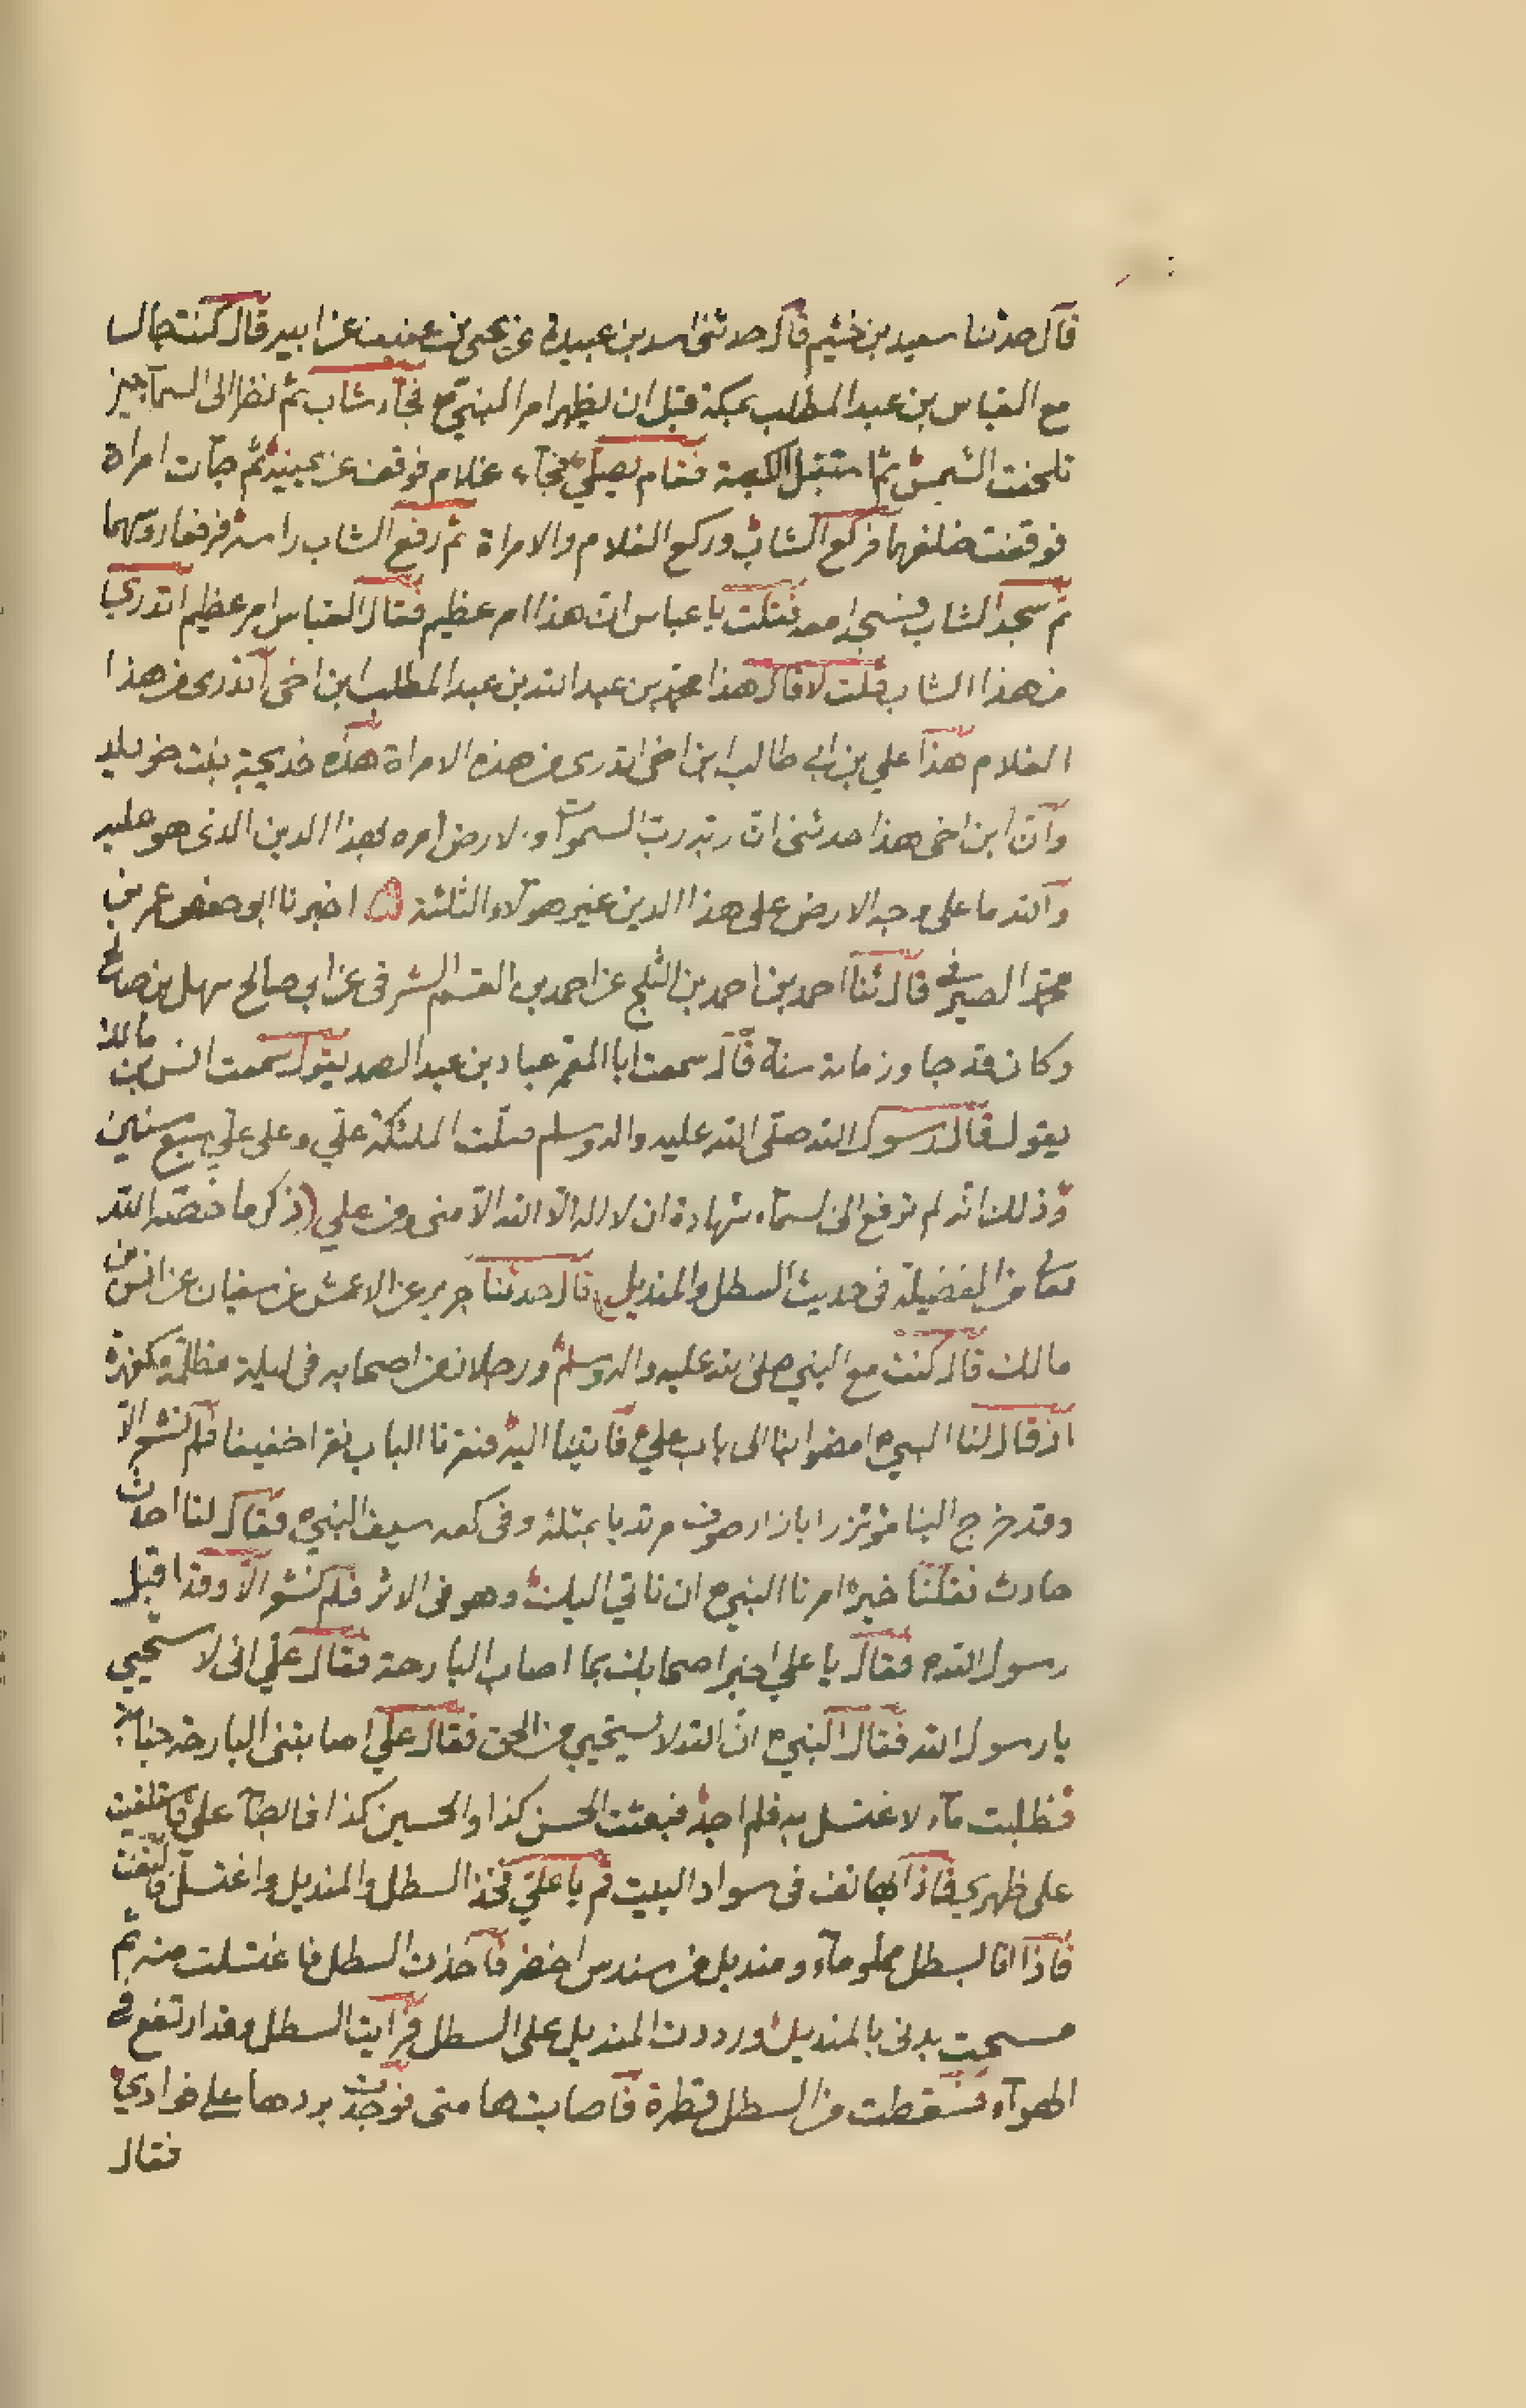 قال حدثنا سعيد بن خثيم قال حدثنى اسد بن عبيدة عن يحيى بن عفيف عن ابيه قال كنت جالسا
مع العباس بن عبد المطلب بمكة قبل ان يظهر امر النبي ع فجآء شاب ثم نظر الى السمآ حين
تلحفت الشمس ثم استقبل الكعبة فقام يصلي فجآء غلام فوقف عن يمينه ثم جآت امراة
فوقفت خلفهما فركع الشاب وركع الغلام والامراة ثم رفع الشاب راسه فرفعا روسهما
ثم سجد الشاب فسجدا معه فقلت يا عباس ان هذا امر عظيم فقال العباس امر عظيم اتدري
من هذا الشاب قلت لا قال هذا محمد بن عبد الله بن عبد المطلب ابن اخى اتدرى من هذا
الغلام هذا علي بن ابي طالب ابن اخى اتدرى من هذه الامراة هذه خديجة بنت خويلد
وان ابن اخى هذا حدثنى ان ربه رب السموات و الارض امره بهذا الدين الذى هو عليه
والله ما على وجه الارض على هذا الدين غير هولآء الثلثة اخبرنا ابو حفص عمر بن
محمد الصيرفى قال ثنا احمد بن احمد بن الثلج عن احمد بن القسم الشرفى عن ابى صالح سهل بن صالح
وكان قد جاوز مائة سنة قال سمعت ابا المعمر عباد بن عبد الصمد يقول سمعت انس بن مالك
يقول قال رسول الله صلى الله عليه واله وسلم صلت الملئكة علي وعلى علي سبع سنين
وذلك انه لم ترفع الى السمآء شهادة ان لا اله الا الله الا منى ومن علي ذكر ما خصه الله
تعا من الفضيلة فى حديث السطل والمنديل قال حدثنا جرير عن الاعمش عن سفيان عن انس بن
مالك قال كنت مع النبي صلى الله عليه واله وسلم ورجلان من اصحابه فى ليلة مظلمة مكفهرة
اذ قال لنا النبي ع امضوا بنا الى باب علي فاتينا اليه فنقرنا الباب نقرا خفيفا فلم نشعر الا
وقد خرج الينا متزرا بازار صوف مرتديا بمثله وفى كفه سيف النبي فقال لنا احدث
حادث فقلنا خير امرنا النبي ع ان ناتي اليك وهو فى الاثر فلم نشعر الا وقد اقبل
رسول الله فقال يا علي اخبر اصحابك بما اصابك البارحة فقال علي انى لا ستحيي
يا رسول الله فقال النبي ع ان الله لا يستحيي من الحق فقال علي اصابتنى البارحة جنابة
فطلبت مآء لاغتسل به فلم اجد فبعثت الحسن كذا والحسين كذا فابطآ علي فاستلقيت
على ظهري فاذا بهاتف فى سواد البيت قم يا علي فخذ السطل والمنديل واغتسل فالتفت
فاذا انا بسطل مملو مآء ومنديل من سندس اخضر فاخذت السطل فاغتسلت منه ثم
مسحت بدنى بالمنديل ورددت المنديل على السطل فرايت السطل وقد ارتفع فى
الهوآء فسقطت من السطل قطرة فاصابت هامتى فوجدت بردها على فوادي
فقال